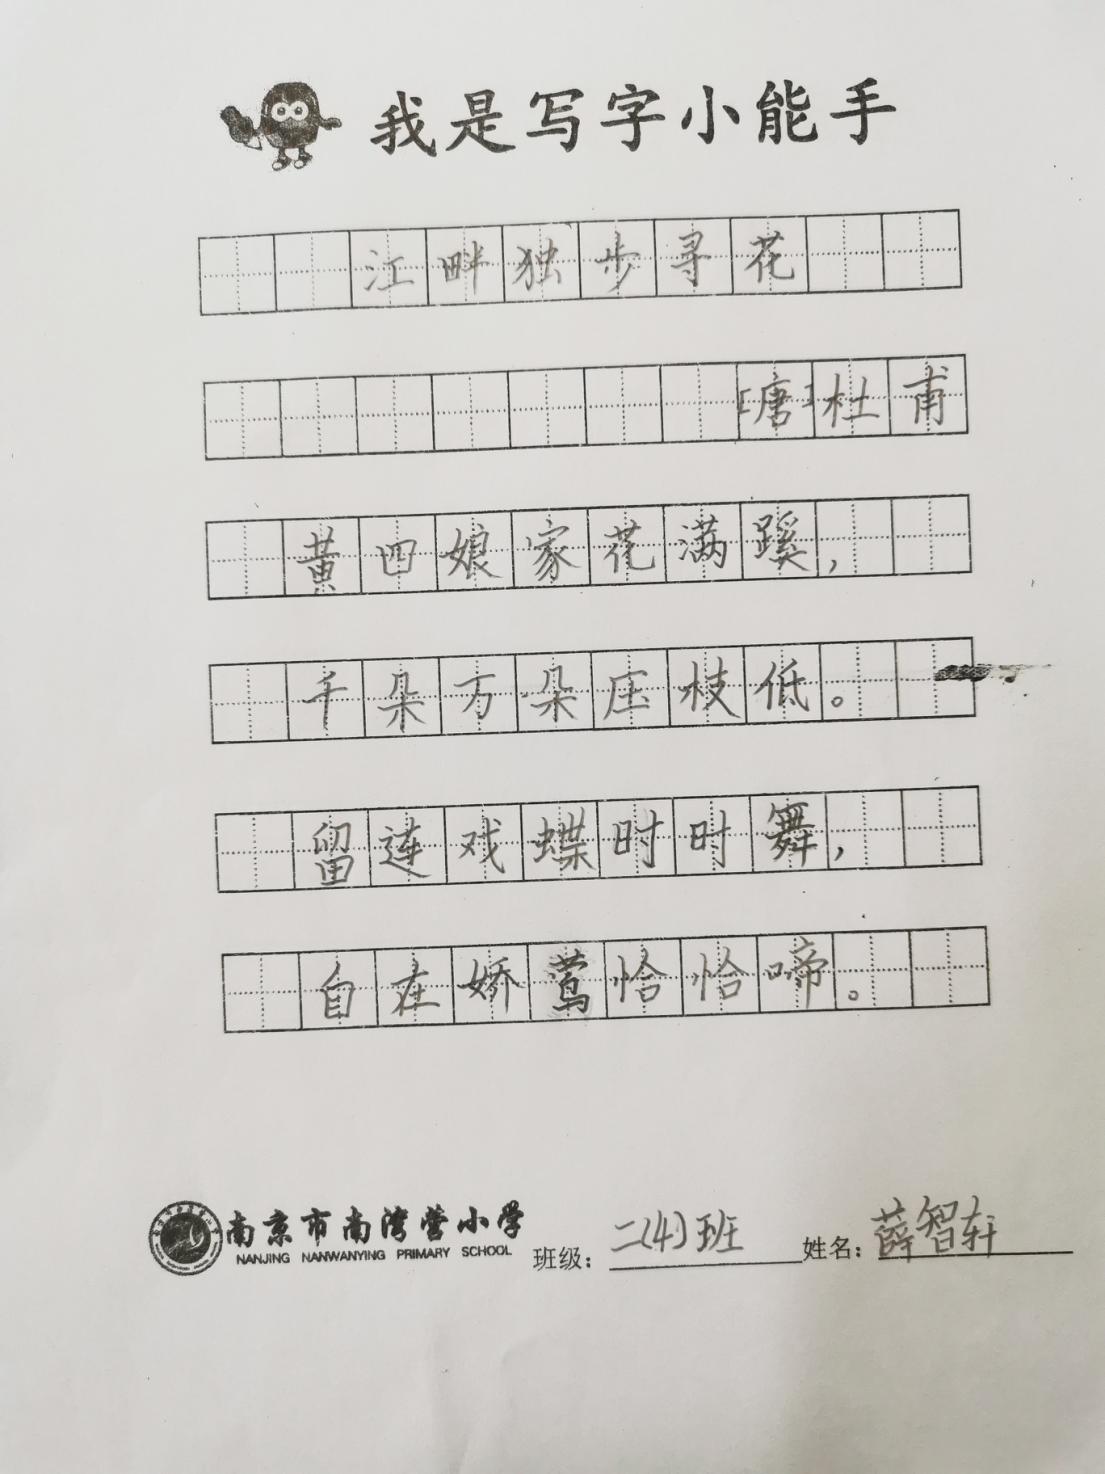 我是写字小能手
江畔独步寻花
[唐]杜甫
黄四娘家花满蹊,
千朵万朵压枝低。
留连戏蝶时时舞,
自在娇莺恰恰啼。
南京市南湾营小学
NANJING NANWANYING PRIMARY SCHOOL
班级: 二(4)班 姓名: 薛智轩